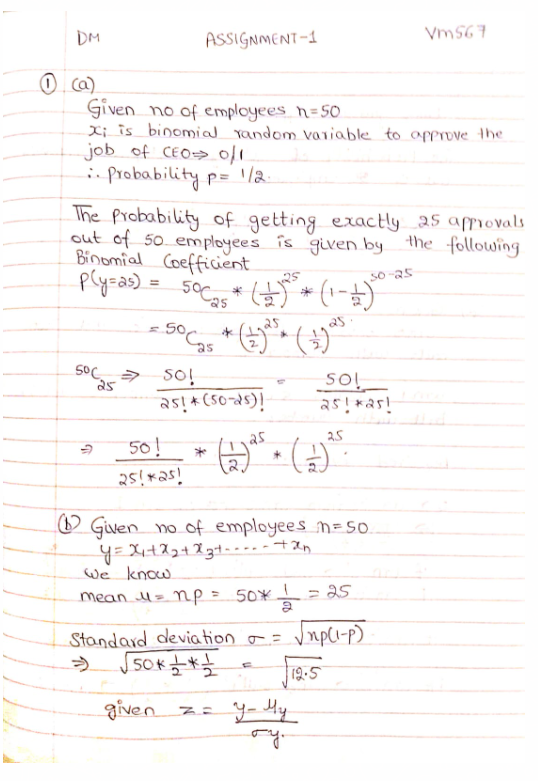 DM ASSIGNMENT-1 Vm567
① (a)
Given no of employees n=50
xᵢ is binomial random variable to approve the
job of CEO⇒ 0/1
∴ Probability p= 1/2.
The Probability of getting exactly 25 approvals
out of 50 employees is given by the following
Binomial Coefficient
P(y=25) = 50C₂₅ * (1/2)^25 * (1-1/2)^50-25
= 50C₂₅ * (1/2)^25 * (1/2)^25.
50C₂₅ ⇒ 50!/25!*(50-25)! = 50!/25!*25!
⇒ 50!/25!*25! * (1/2)^25 * (1/2)^25.
(b) Given no of employees n=50
y= x₁+x₂+x₃+-----+xₙ
We know
mean μ= np = 50* 1/2 = 25
Standard deviation σ = √np(1-P)
⇒ √50*1/2*1/2 = √12.5
given z = y-μy/σy.